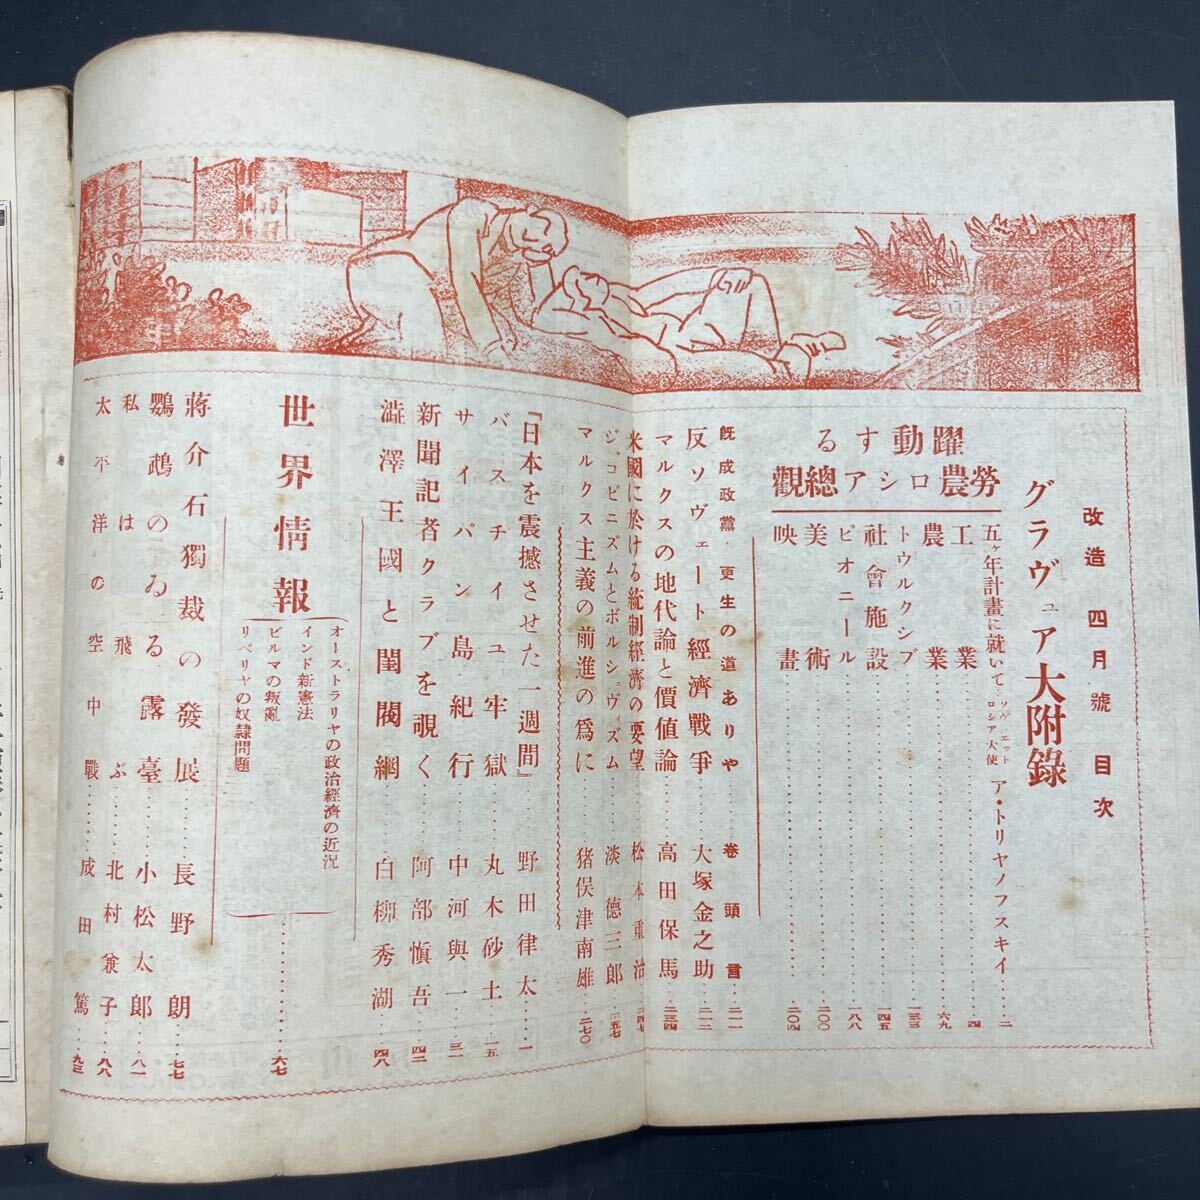 改造 四月號 目次
グラヴュア大附錄
躍動する
勞農ロシア總觀
五ヶ年計畫に就いて ソヴエットロシア大使 ア・トリヤノフスキイ……二
工業……四
農業……六九
トウルクシブ……一三三
社會施設……一四五
ピオニール……一八八
美術……二〇〇
映畫……二〇四
既成政黨・更生の道ありや……卷頭言……二一
反ソヴェート經濟戰爭……大塚金之助……二二
マルクスの地代論と價値論……高田保馬……二三四
米國に於ける統制經濟の要望……松本重治……二四七
ジャコビニズムとボルシェヴィズム……淡德三郎……二五七
マルクス主義の前進の爲に……猪俣津南雄……二七〇
『日本を震撼させた一週間』……野田律太……一
バスチイユ牢獄……丸木砂土……一五
サイパン島紀行……中河與一……三一
新聞記者クラブを覗く……阿部愼吾……四二
澁澤王國と閨閥綱……白柳秀湖……四八
世界情報
オーストラリヤの政治經濟の近況
インド新憲法
ビルマの叛亂
リベリヤの奴隷問題
……六七
蔣介石獨裁の發展……長野朗……七七
鸚鵡のゐる露臺……小松太郎……八一
私は飛ぶ……北村兼子……八八
太平洋の空中戰……成田篤……九三